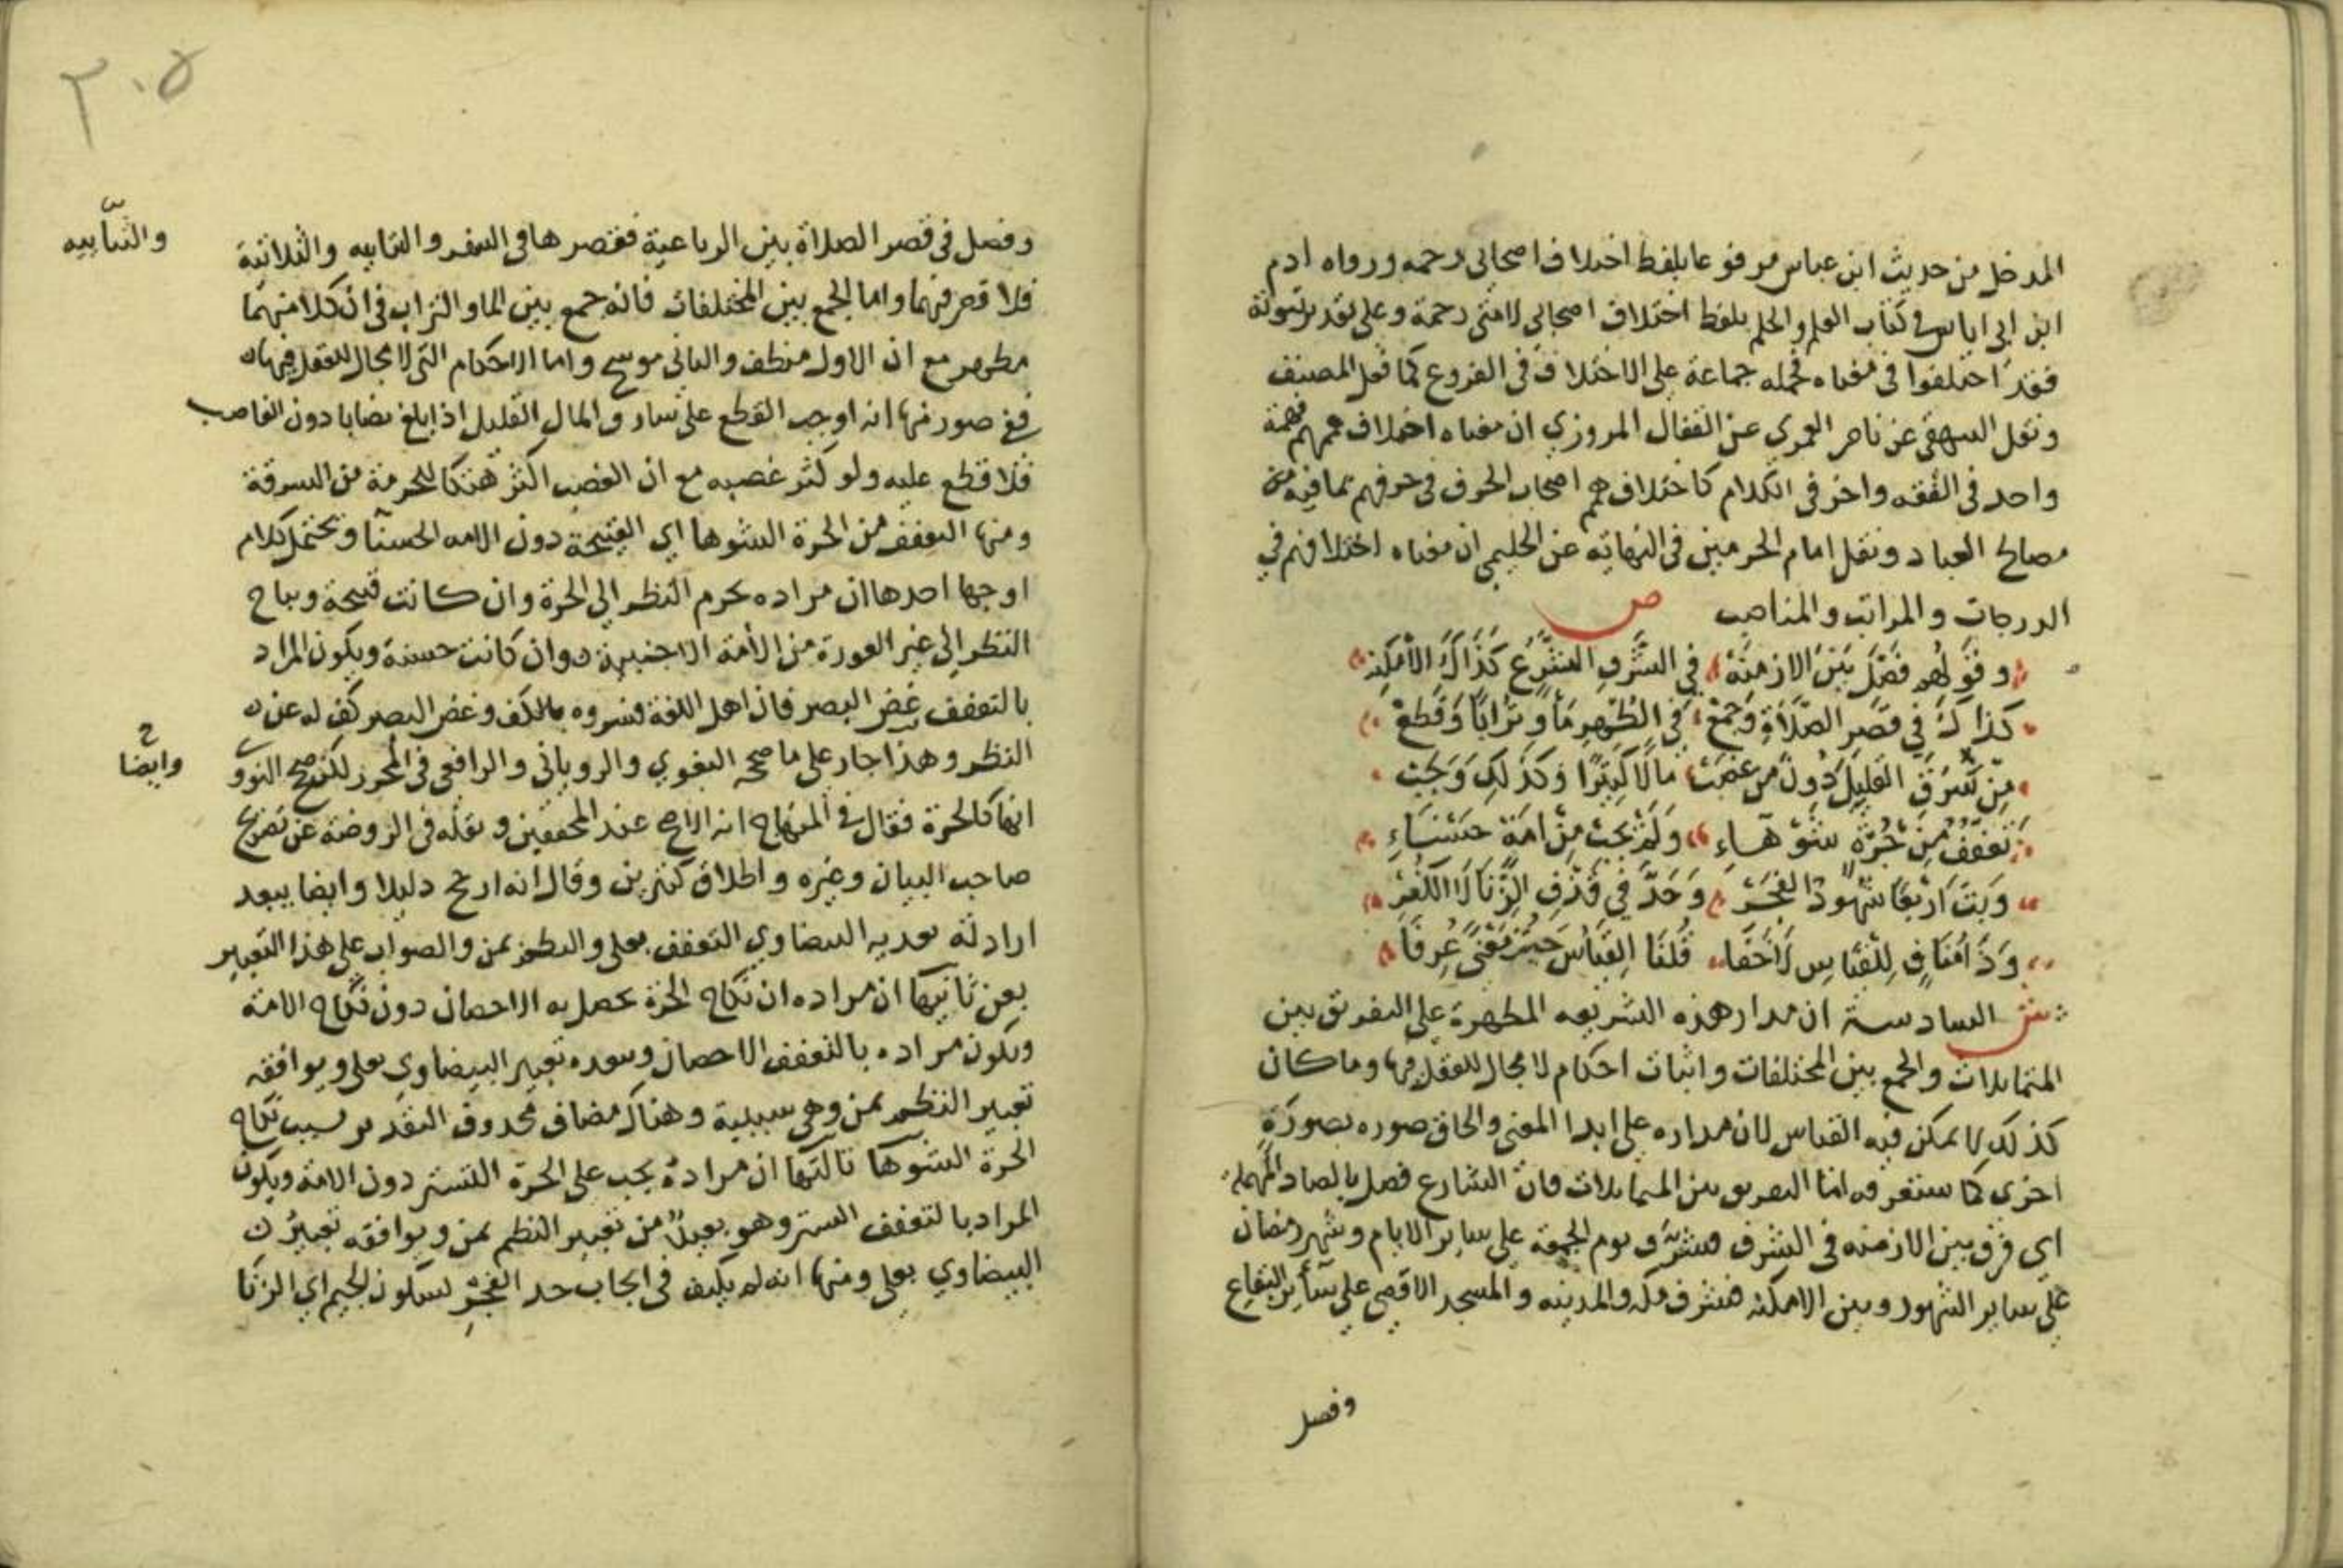 المدخل من حديث ابن عباس مرفوعا بلفظ اختلاف اصحابي رحمه ورواه ادم
ابن ابي اياس في كتاب العلم والحلم بلفظ اختلاف اصحابي لامتي رحمة وعلى تقدير ثبوته
فقد اختلفوا في معناه فحمله جماعة على الاختلاف في الفروع كما فعل المصنف
ونقل السهقي عن ناصر العمري عن القفال المروزي ان معناه اختلاف هممهم فهمة
واحد في الفقه واخر في الكلام كاختلاف همم اصحاب الحرف في حرفهم بما فيه من
مصالح العباد ونقل امام الحرمين في النهاية عن الحليمي ان معناه اختلافهم في
الدرجات والمراتب والمناصب ص
وقولهم فصل بين الازمنة في الشرف الشرع كذاك الأمكنه
كذاك في قصر الصلاة وجمع في الطهر مأ وترابا وقطع
من سرق القليل دون من غصب مالا كثيرا وكذلك وجب
تعفف من حرة شوهاء ولم يجب من امة حسناء
وبت اربعا شهود الفجر وحد في قذف الزنا لا الكفر
وذا مناف للقياس لا خفا قلنا القياس حيث معنى عرفا
ش السادسة ان مدار هذه الشريعه المطهرة على التفريق بين
المتماثلات والجمع بين المختلفات واثبات احكام لا مجال للعقل فيها وما كان
كذلك لا يمكن فيه القياس لان مداره على ابدا المعنى والحاق صوره بصورة
اخرى كما ستعرفه اما التفريق بين المتماثلات فان الشارع فصل بالصاد المهملة
اي فرق بين الازمنه في الشرف فشرف يوم الجمعة على ساير الايام وشهر رمضان
على ساير الشهور وبين الامكنه فشرف مكه والمدينه والمسجد الاقصى على سأير البقاع
وفصل
٣٠٥
وفصل في قصر الصلاة بين الرباعية فقصرها في السفر والثنايه والثلاثية
والثنايه
فلا قصر فيهما واما الجمع بين المختلفات فانه جمع بين الما والتراب في ان كلا منهما
مطهر مع ان الاول منظف والثاني موسخ واما الاحكام التي لا مجال للعقل فيها
ففي صور منها انه اوجب القطع على سارق المال القليل اذا بلغ نصابا دون الغاصب
فلا قطع عليه ولو كثر غصبه مع ان الغصب اكثر هتكا للحرمة من السرقة
ومنها التعفف من الحرة الشوها اي القبيحة دون الامه الحسنا ويحتمل كلام
اوجها احدها ان مراده يحرم النظر الي الحرة وان كانت قبيحة ويباح
النظر الي غير العورة من الأمة الاجنبية وان كانت حسنة ويكون المراد
بالتعفف غض البصر فان اهل اللغة فسروه بالكف وغض البصر كف له عن
النظر وهذا جار على ما صححه البغوي والروياني والرافعي في المحرر لكن صح النووي
وايضا
انها كالحرة فقال في المنهاج انه الاصح عند المحققين ونقله في الروضة عن تصريح
صاحب البيان وغيره واطلاق كثيرين وقال انه ارجح دليلا وايضا يبعد
ارادته تعديه البيضاوي التعفف بعلى والنظم بمن والصواب على هذا التعبير
بعن ثانيها ان مراده ان نكاح الحرة يحصل به الاحصان دون نكاح الامة
ويكون مراده بالتعفف الاحصان ويبعده تعبير البيضاوي بعلى ويوافقه
تعبير النظم بمن وهي سببية وهناك مضاف محذوف التقدير بسبب نكاح
الحرة الشوها ثالثها ان مراده يجب على الحرة التستر دون الامة ويكون
المراد بالتعفف الستر وهو بعيد من تعبير النظم بمن ويوافقه تعبير
البيضاوي بعلى ومنها انه لم يكتف في ايجاب حد الفجر بسكون الجيم اي الزنا